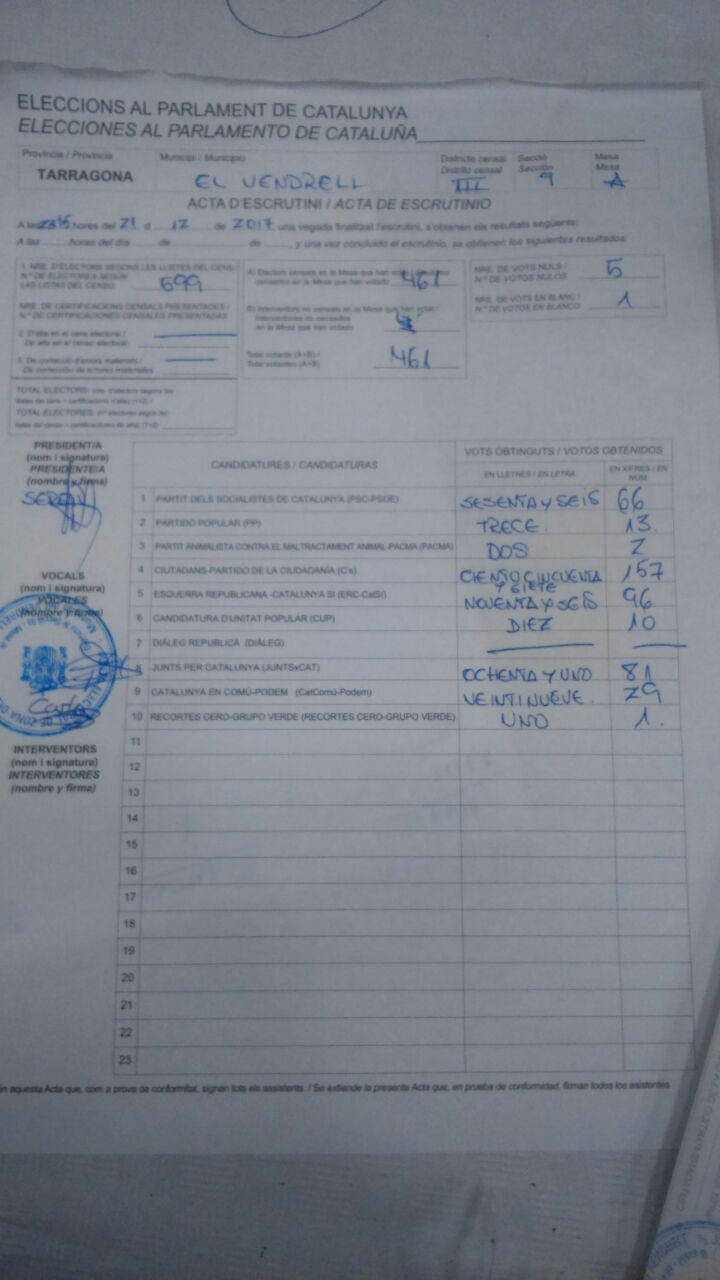 ELECCIONS AL PARLAMENT DE CATALUNYA
ELECCIONES AL PARLAMENTO DE CATALUÑA
Província / Provincia Municipi / Municipio Districte censal Secció Mesa
Distrito censal Sección Mesa
TARRAGONA EL VENDRELL III 9 A
ACTA D'ESCRUTINI / ACTA DE ESCRUTINIO
A les hores del 21 d 12 de 2017, una vegada finalitzat l'escrutini, s'obtenen els resultats següents:
A las horas del día de de , y una vez concluido el escrutinio, se obtienen los siguientes resultados:
1. NRE. D'ELECTORS SEGONS LES LLISTES DEL CENS
N.º DE ELECTORES SEGÚN
LAS LISTAS DEL CENSO 699
NRE. DE CERTIFICACIONS CENSALS PRESENTADES /
N.º DE CERTIFICACIONES CENSALES PRESENTADAS
2. D'alta en el cens electoral /
De alta en el censo electoral
3. De correcció d'errors materials /
De corrección de errores materiales
TOTAL ELECTORS
TOTAL ELECTORES
A) Electors censats en la Mesa que han votat
censados en la Mesa que han votado 461
B) Interventors no censats en la Mesa que han votat /
Interventores no censados
en la Mesa que han votado
Total votants (A+B) /
Total votantes (A+B) 461
NRE. DE VOTS NULS /
N.º DE VOTOS NULOS 5
NRE. DE VOTS EN BLANC /
N.º DE VOTOS EN BLANCO 1
PRESIDENT/A
(nom i signatura)
PRESIDENTE/A
(nombre y firma)
VOCALS
(nom i signatura)
VOCALES
(nombre y firma)
INTERVENTORS
(nom i signatura)
INTERVENTORES
(nombre y firma)
CANDIDATURES / CANDIDATURAS VOTS OBTINGUTS / VOTOS OBTENIDOS
EN LLETRES / EN LETRA EN XIFRES / EN NÚM
1 PARTIT DELS SOCIALISTES DE CATALUNYA (PSC-PSOE) SESENTA Y SEIS 66
2 PARTIDO POPULAR (PP) TRECE. 13.
3 PARTIT ANIMALISTA CONTRA EL MALTRACTAMENT ANIMAL-PACMA (PACMA) DOS 2
4 CIUTADANS-PARTIDO DE LA CIUDADANÍA (C's) CIENTO CINCUENTA Y SIETE 157
5 ESQUERRA REPUBLICANA -CATALUNYA SI (ERC-CatSí) NOVENTA Y SEIS 96
6 CANDIDATURA D'UNITAT POPULAR (CUP) DIEZ 10
7 DIÀLEG REPUBLICÀ (DIÀLEG)
8 JUNTS PER CATALUNYA (JUNTSxCAT) OCHENTA Y UNO 81
9 CATALUNYA EN COMÚ-PODEM (CatComú-Podem) VEINTINUEVE. 29
10 RECORTES CERO-GRUPO VERDE (RECORTES CERO-GRUPO VERDE) UNO 1.
11
12
13
14
15
16
17
18
19
20
21
22
23
aquesta Acta que, com a prova de conformitat, signen tots els assistents. / Se extiende la presente Acta que, en prueba de conformidad, firman todos los asistentes.